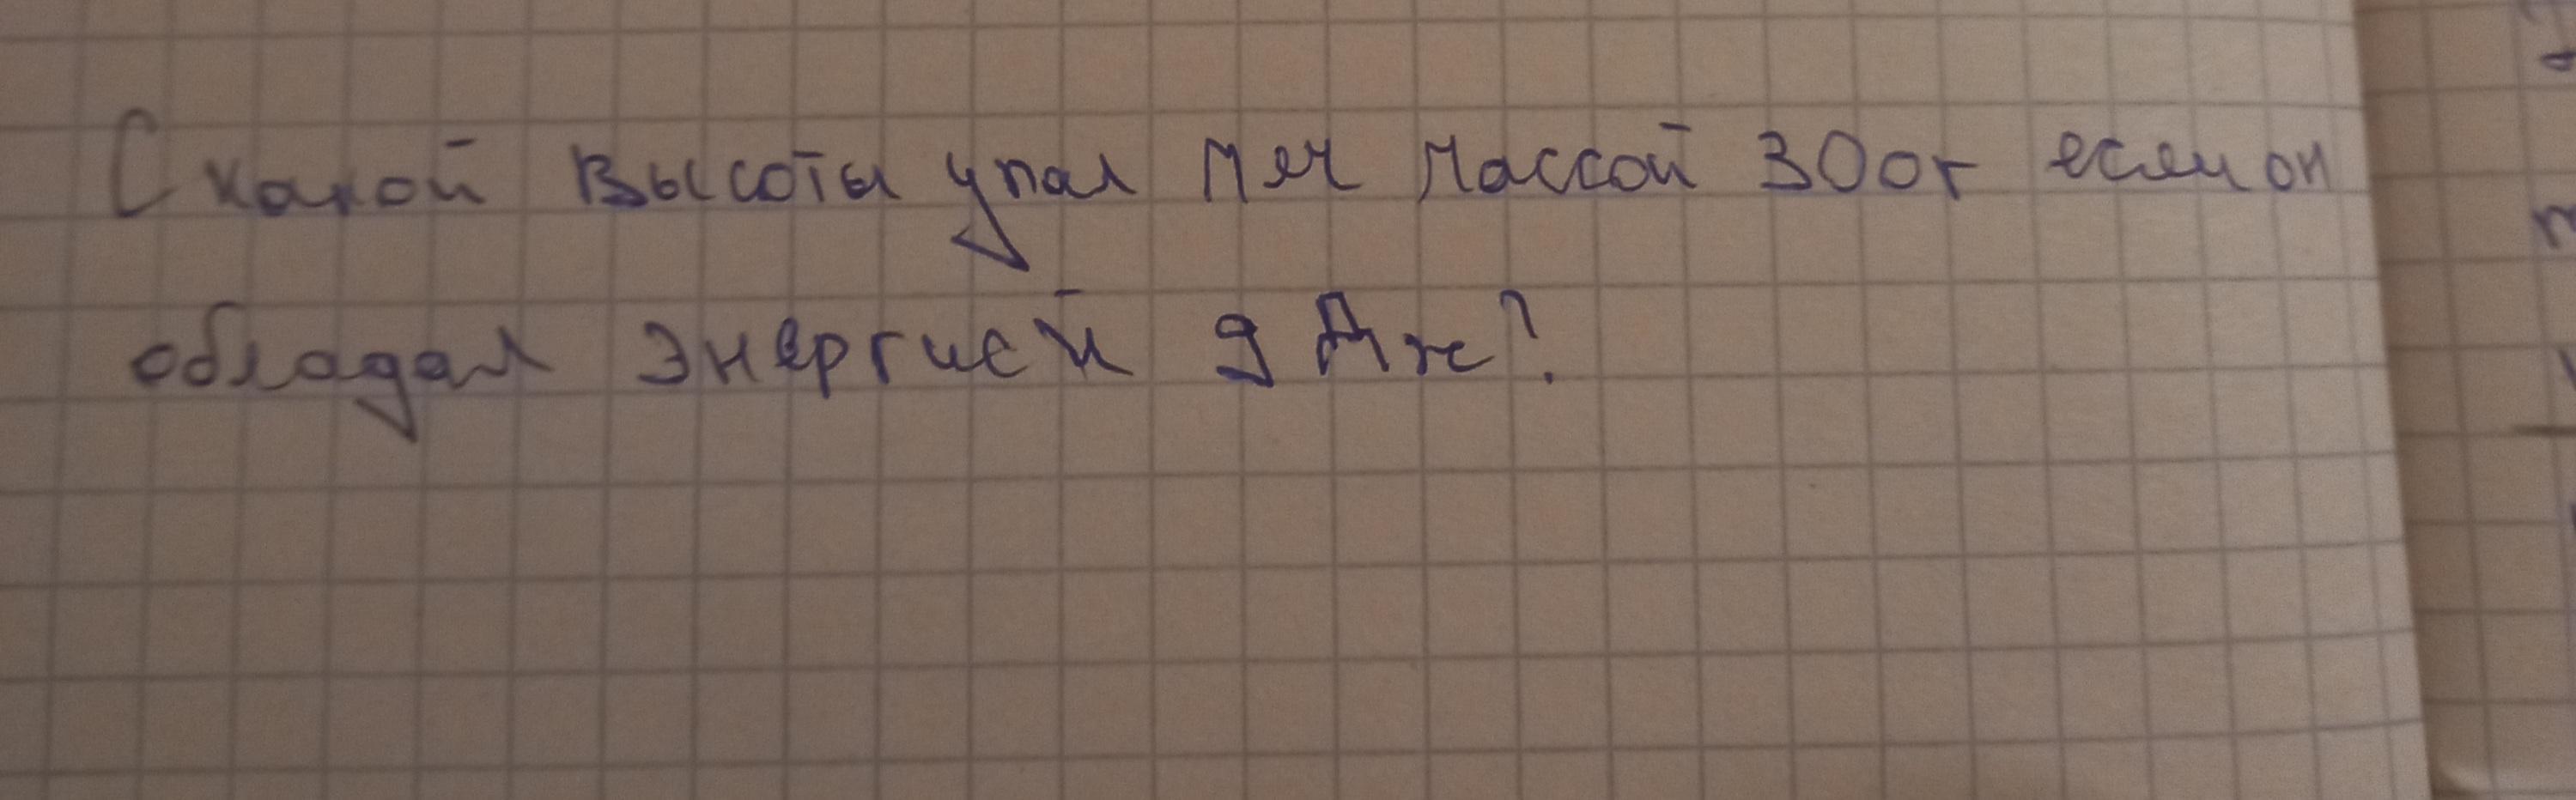 С какой высоты упал меч массой 300г если он
обладал энергией 9 Дж?